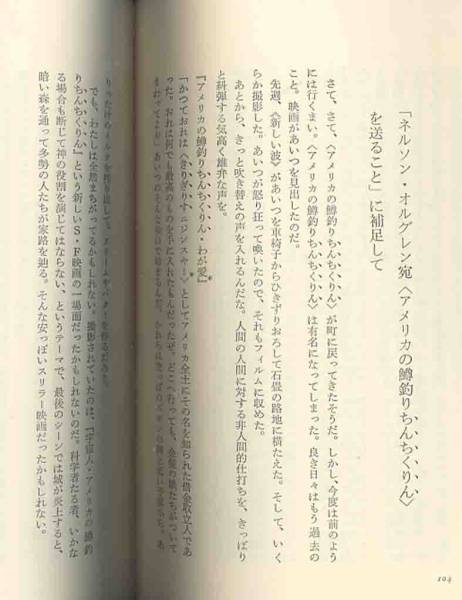 「ネルソン・オルグレン宛〈アメリカの鱒釣りちんちくりん〉
を送ること」に補足して
さて、さて、〈アメリカの鱒釣りちんちくりん〉が町に戻ってきたそうだ。しかし、今度は前のよう
には行くまい。〈アメリカの鱒釣りちんちくりん〉は有名になってしまった。良き日々はもう過去の
こと。映画があいつを見出したのだ。
先週、〈新しい波〉があいつを車椅子からひきずりおろして石畳の路地に横たえた。そして、いく
らか撮影した。あいつが怒り狂って喚いたので、それもフィルムに収めた。
あとから、きっと吹き替えの声を入れるんだな。人間の人間に対する非人間的仕打ちを、きっぱり
と糾弾する気高く雄弁な声を。
『アメリカの鱒釣りちんちくりん・わが愛』
「かつておれは〈きりぎりす・ニジンスキー〉としてアメリカ全土にその名を知られた借金取立人であ
った。おれは何でも最高のものを手に入れたもんだったぜ。どこへ行っても、金髪の娘たちがついて
まわってよ」
でも、わたしは全然まちがってるかもしれない。撮影されていたのは、『宇宙人・アメリカの鱒釣
りちんちくりん』という新しいS・F映画の一場面だったかもしれないのだ。科学者たる者、いかな
る場合も断じて神の役割を演じてはならない、というテーマで、最後のシーンでは城が炎上すると、
暗い森を通って多勢の人たちが家路を辿る。そんな安っぽいスリラー映画だったかもしれない。
104